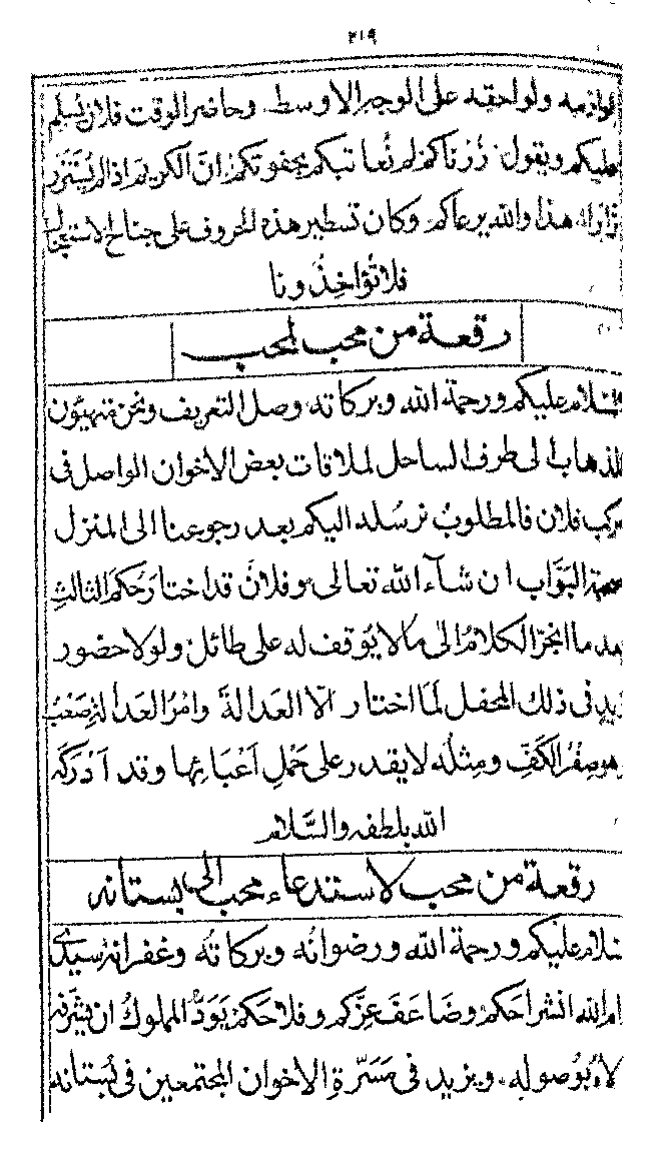 ٢١٩
لوازمه ولواحقه على الوجه الاوسط وحاضر الوقت فلان يُسلم
عليكم ويقول زُرْناكم لم نُعاتبكم بجفوتكم اِنّ الكريم اذا لم يُسْتَزَر
زارا هذا والله يرعاكم وكان تسطير هذه الحروف على جناح الاستعجال
فلا تُؤاخِذُونا
رقعة من محب لمحب
السلام عليكم ورحمة الله وبركاته وصل التعريف ونحن متهيّون
للذهاب الى طرف الساحل لملاقات بعض الاخوان الواصل فى
مركب فلان فالمطلوبُ نرسُله اليكم بعد رجوعنا الى المنزل
صحبة البَوَّاب ان شآء الله تعالى وفلانٌ قد اختارَحَكم الثالث
بعد ما انجرّ الكلامُ الى ما لا يُوقف له على طائل ولولا حضور
زيدٍ فى ذلك المحفل لَمَا اختار الّا العَدالةَ وامْرُ العَدالةِ صَعْبٌ
وهو صِفْرُ الكَفِّ ومِثلُه لا يقدر على حَمْلِ اَعْبَائِها وقد اَدْرَكَه
الله بلطفه والسَّلام
رقعة من محب لاستدعاء محب الى بستانه
سلام عليكم ورحمة الله ورضوانُه وبركاتُه وغفرانه سيدى
ادام الله انشراحَكم وضَاعَفَ عِزَّكم وفلاحَكم يَوَدُّ المملوكُ ان تشرّفه
بوصوله ويزيد فى مَسَرّةِ الاخوان المجتمعين فى بُستانه